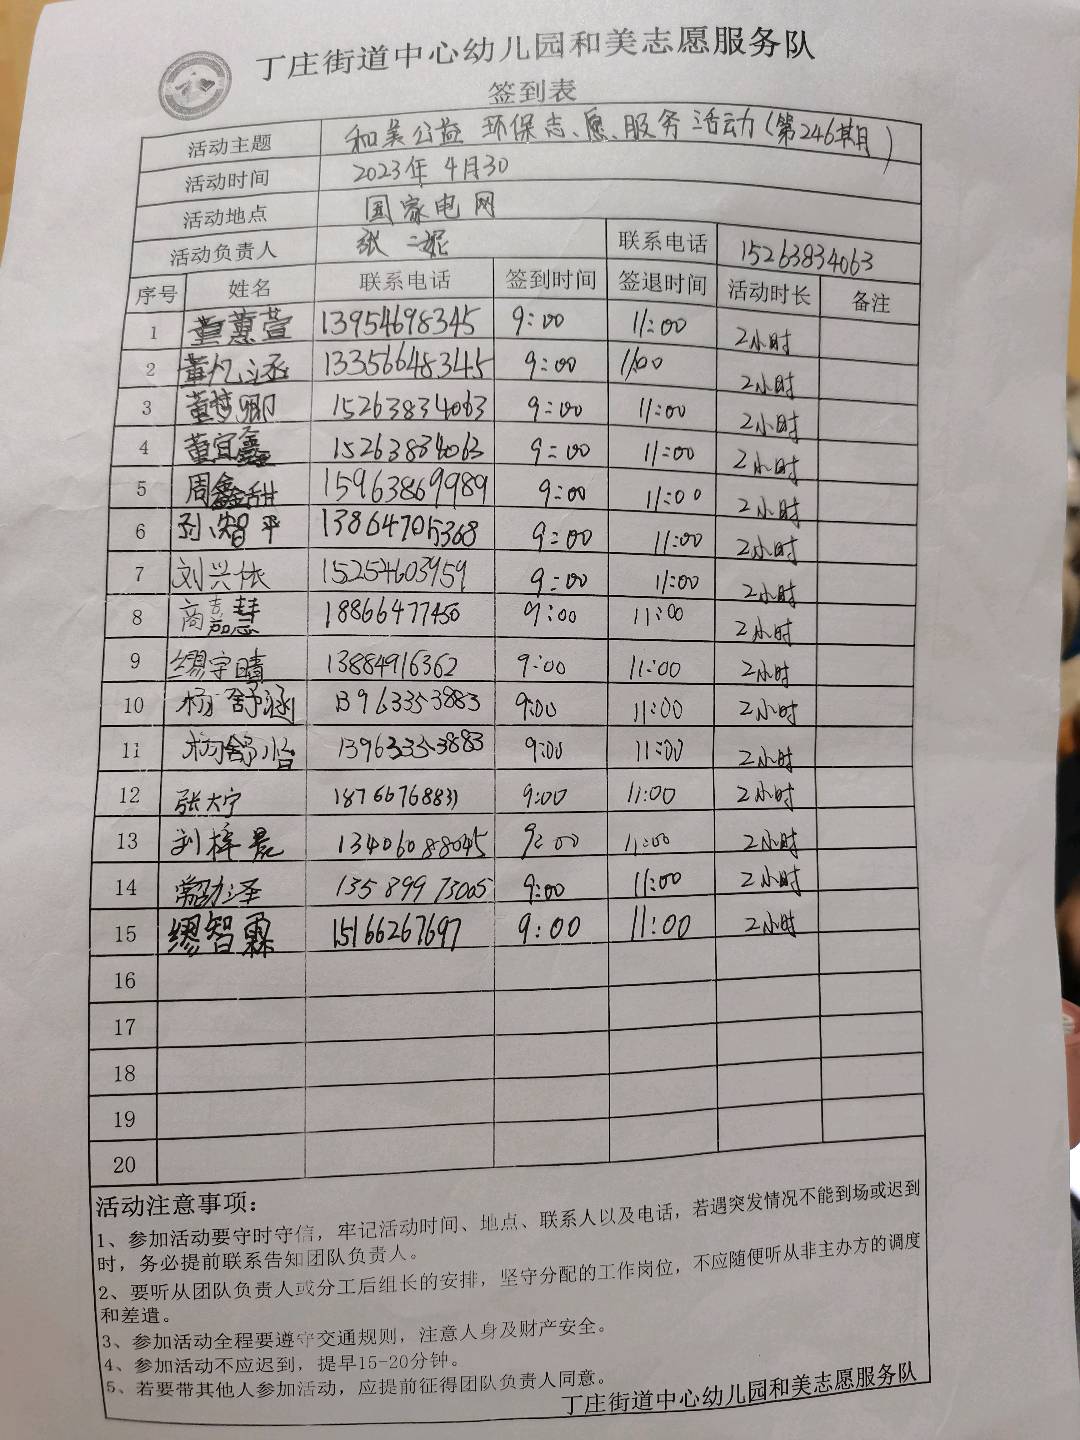 丁庄街道中心幼儿园和美志愿服务队
签到表
活动主题 和美公益 环保志愿服务活动(第246期)
活动时间 2023年4月30
活动地点 国家电网
活动负责人 张二妮 联系电话 15263834063
序号 姓名 联系电话 签到时间 签退时间 活动时长 备注
1 董蕙萱 13954698345 9:00 11:00 2小时
2 董忆涵 13356648345 9:00 11:00 2小时
3 董梦卿 15263834063 9:00 11:00 2小时
4 董宜鑫 15263834063 9:00 11:00 2小时
5 周鑫甜 15963869989 9:00 11:00 2小时
6 孙智平 13864705368 9:00 11:00 2小时
7 刘兴依 15254603959 9:00 11:00 2小时
8 商嘉慧 18866477450 9:00 11:00 2小时
9 缪宇晴 13884916362 9:00 11:00 2小时
10 杨舒涵 13963353883 9:00 11:00 2小时
11 杨舒怡 13963353883 9:00 11:00 2小时
12 张大宁 18766768831 9:00 11:00 2小时
13 刘梓晨 13406088045 9:00 11:00 2小时
14 泽 13589973005 9:00 11:00 2小时
15 缪智霖 15166267697 9:00 11:00 2小时
16
17
18
19
20
活动注意事项:
1、参加活动要守时守信，牢记活动时间、地点、联系人以及电话，若遇突发情况不能到场或迟到
时，务必提前联系告知团队负责人。
2、要听从团队负责人或分工后组长的安排，坚守分配的工作岗位，不应随便听从非主办方的调度
和差遣。
3、参加活动全程要遵守交通规则，注意人身及财产安全。
4、参加活动不应迟到，提早15-20分钟。
5、若要带其他人参加活动，应提前征得团队负责人同意。
丁庄街道中心幼儿园和美志愿服务队